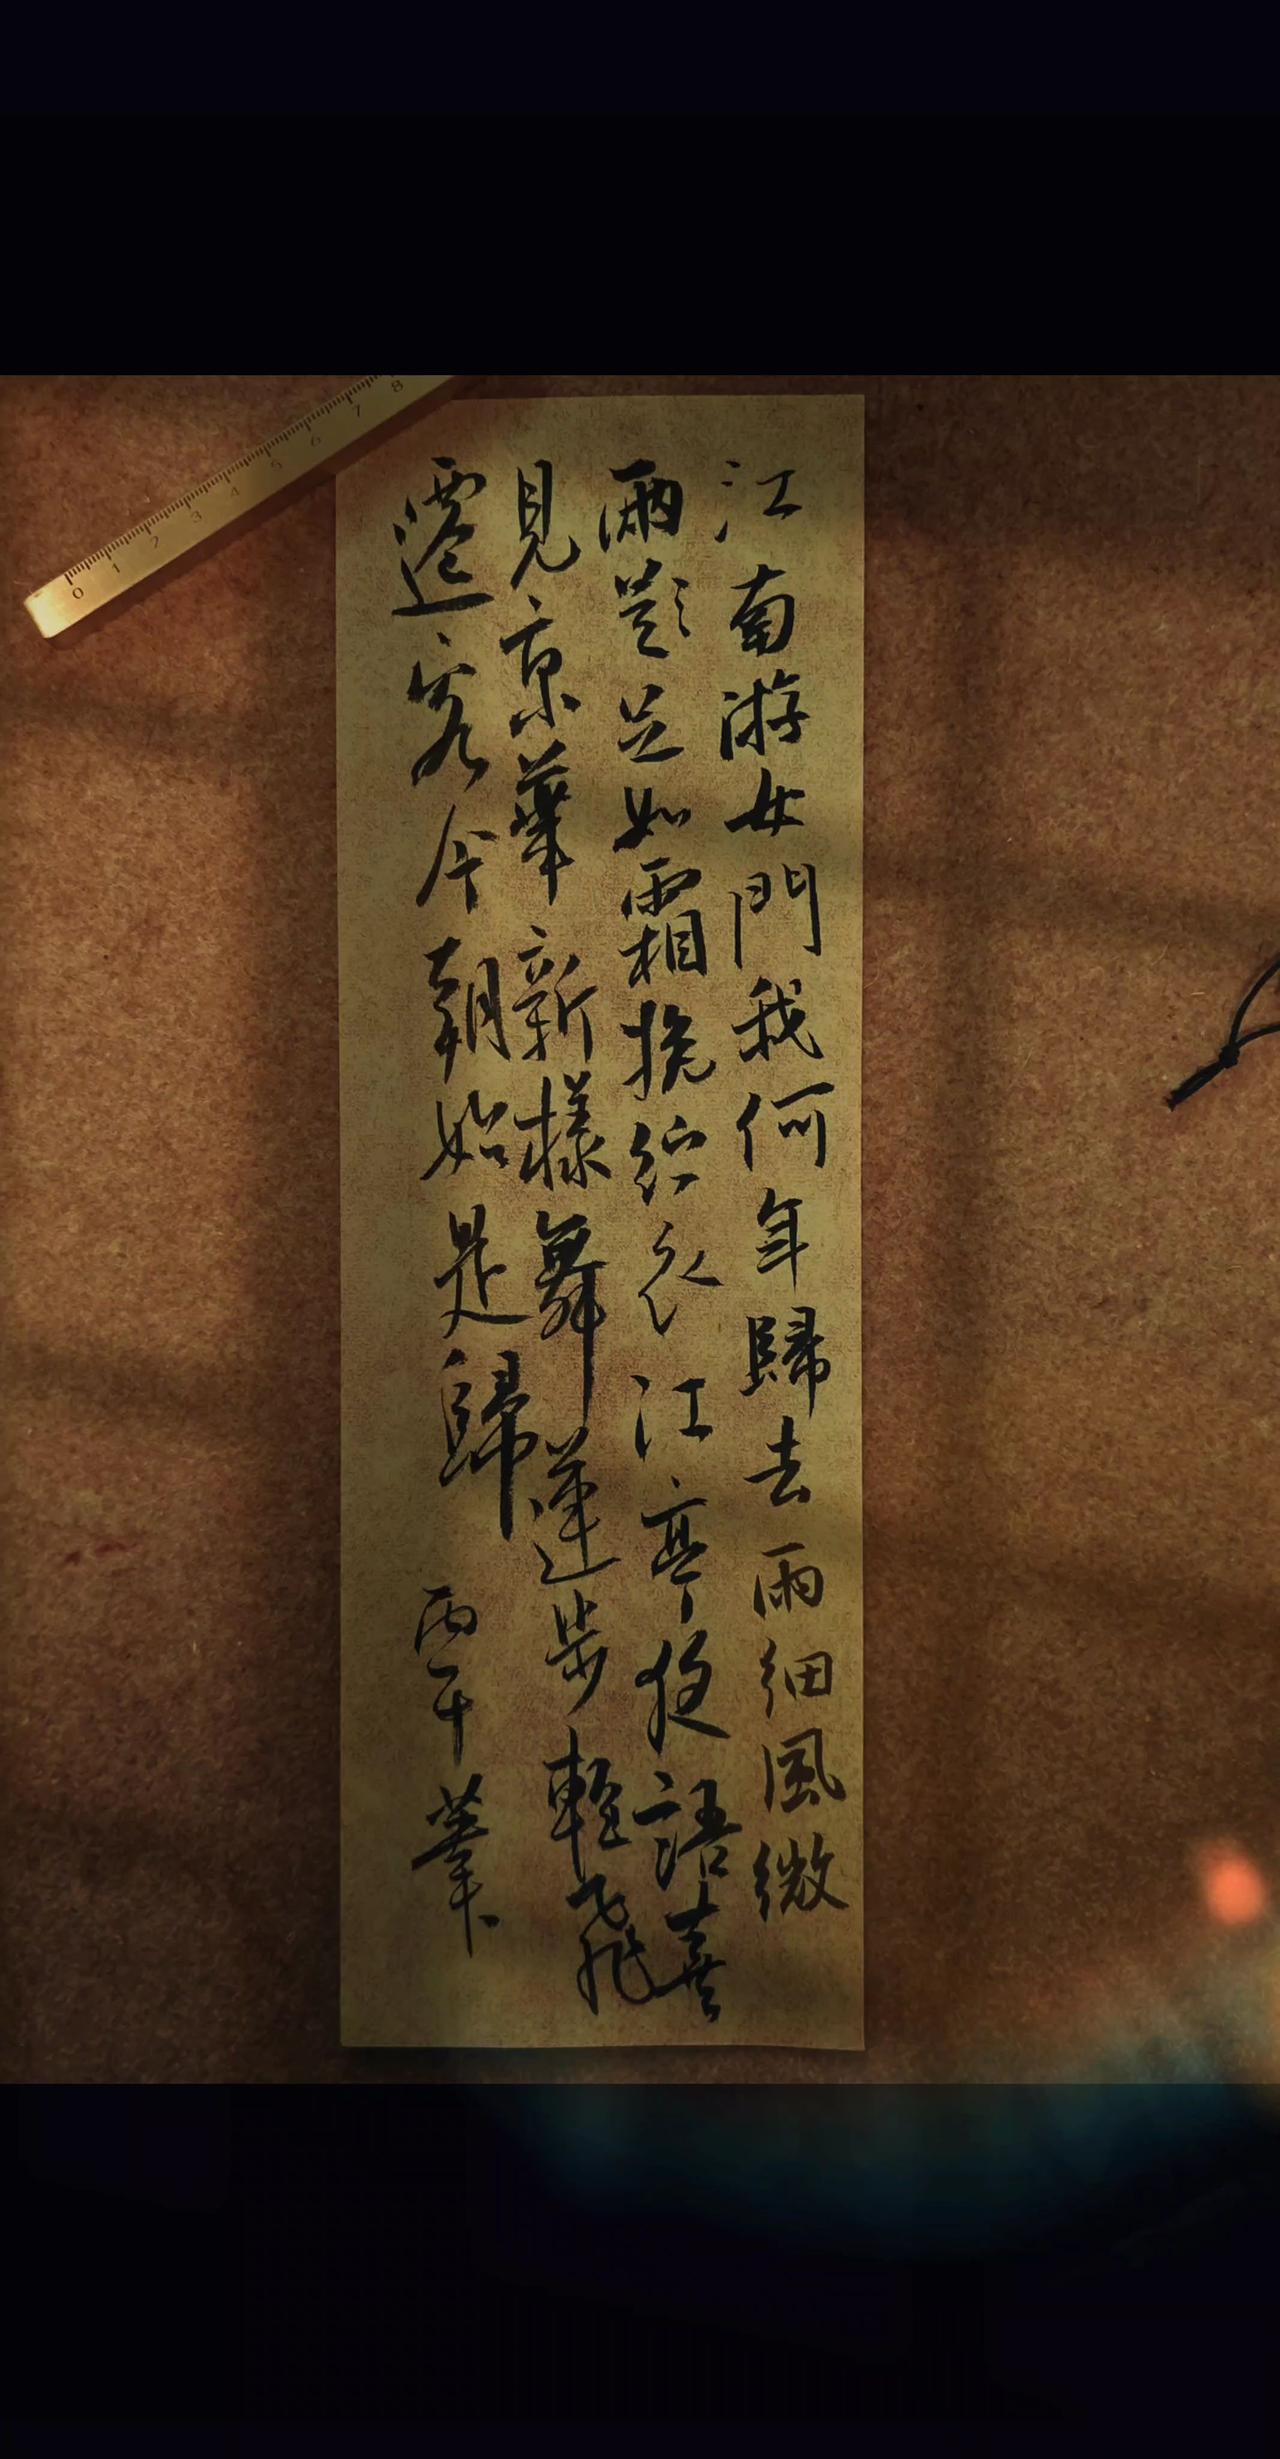 江南游女門我何年歸去雨細風微
兩足如霜挽紵衣江亭夜語喜
見京華新樣舞蓮步輕飛
遷客今朝始是歸
丙午
0 1 2 3 4 5 6 7 8